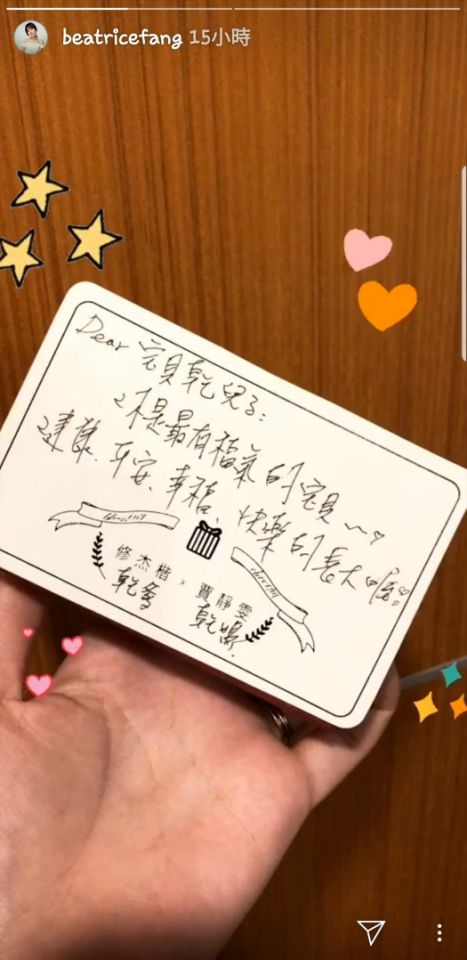 beatricefang 15小時
Dear 宝貝乾兒子:
你是最有福氣的宝貝~♡
健康、平安、幸福、快樂的長大喔
修杰楷 × 賈靜雯
乾爹 乾媽